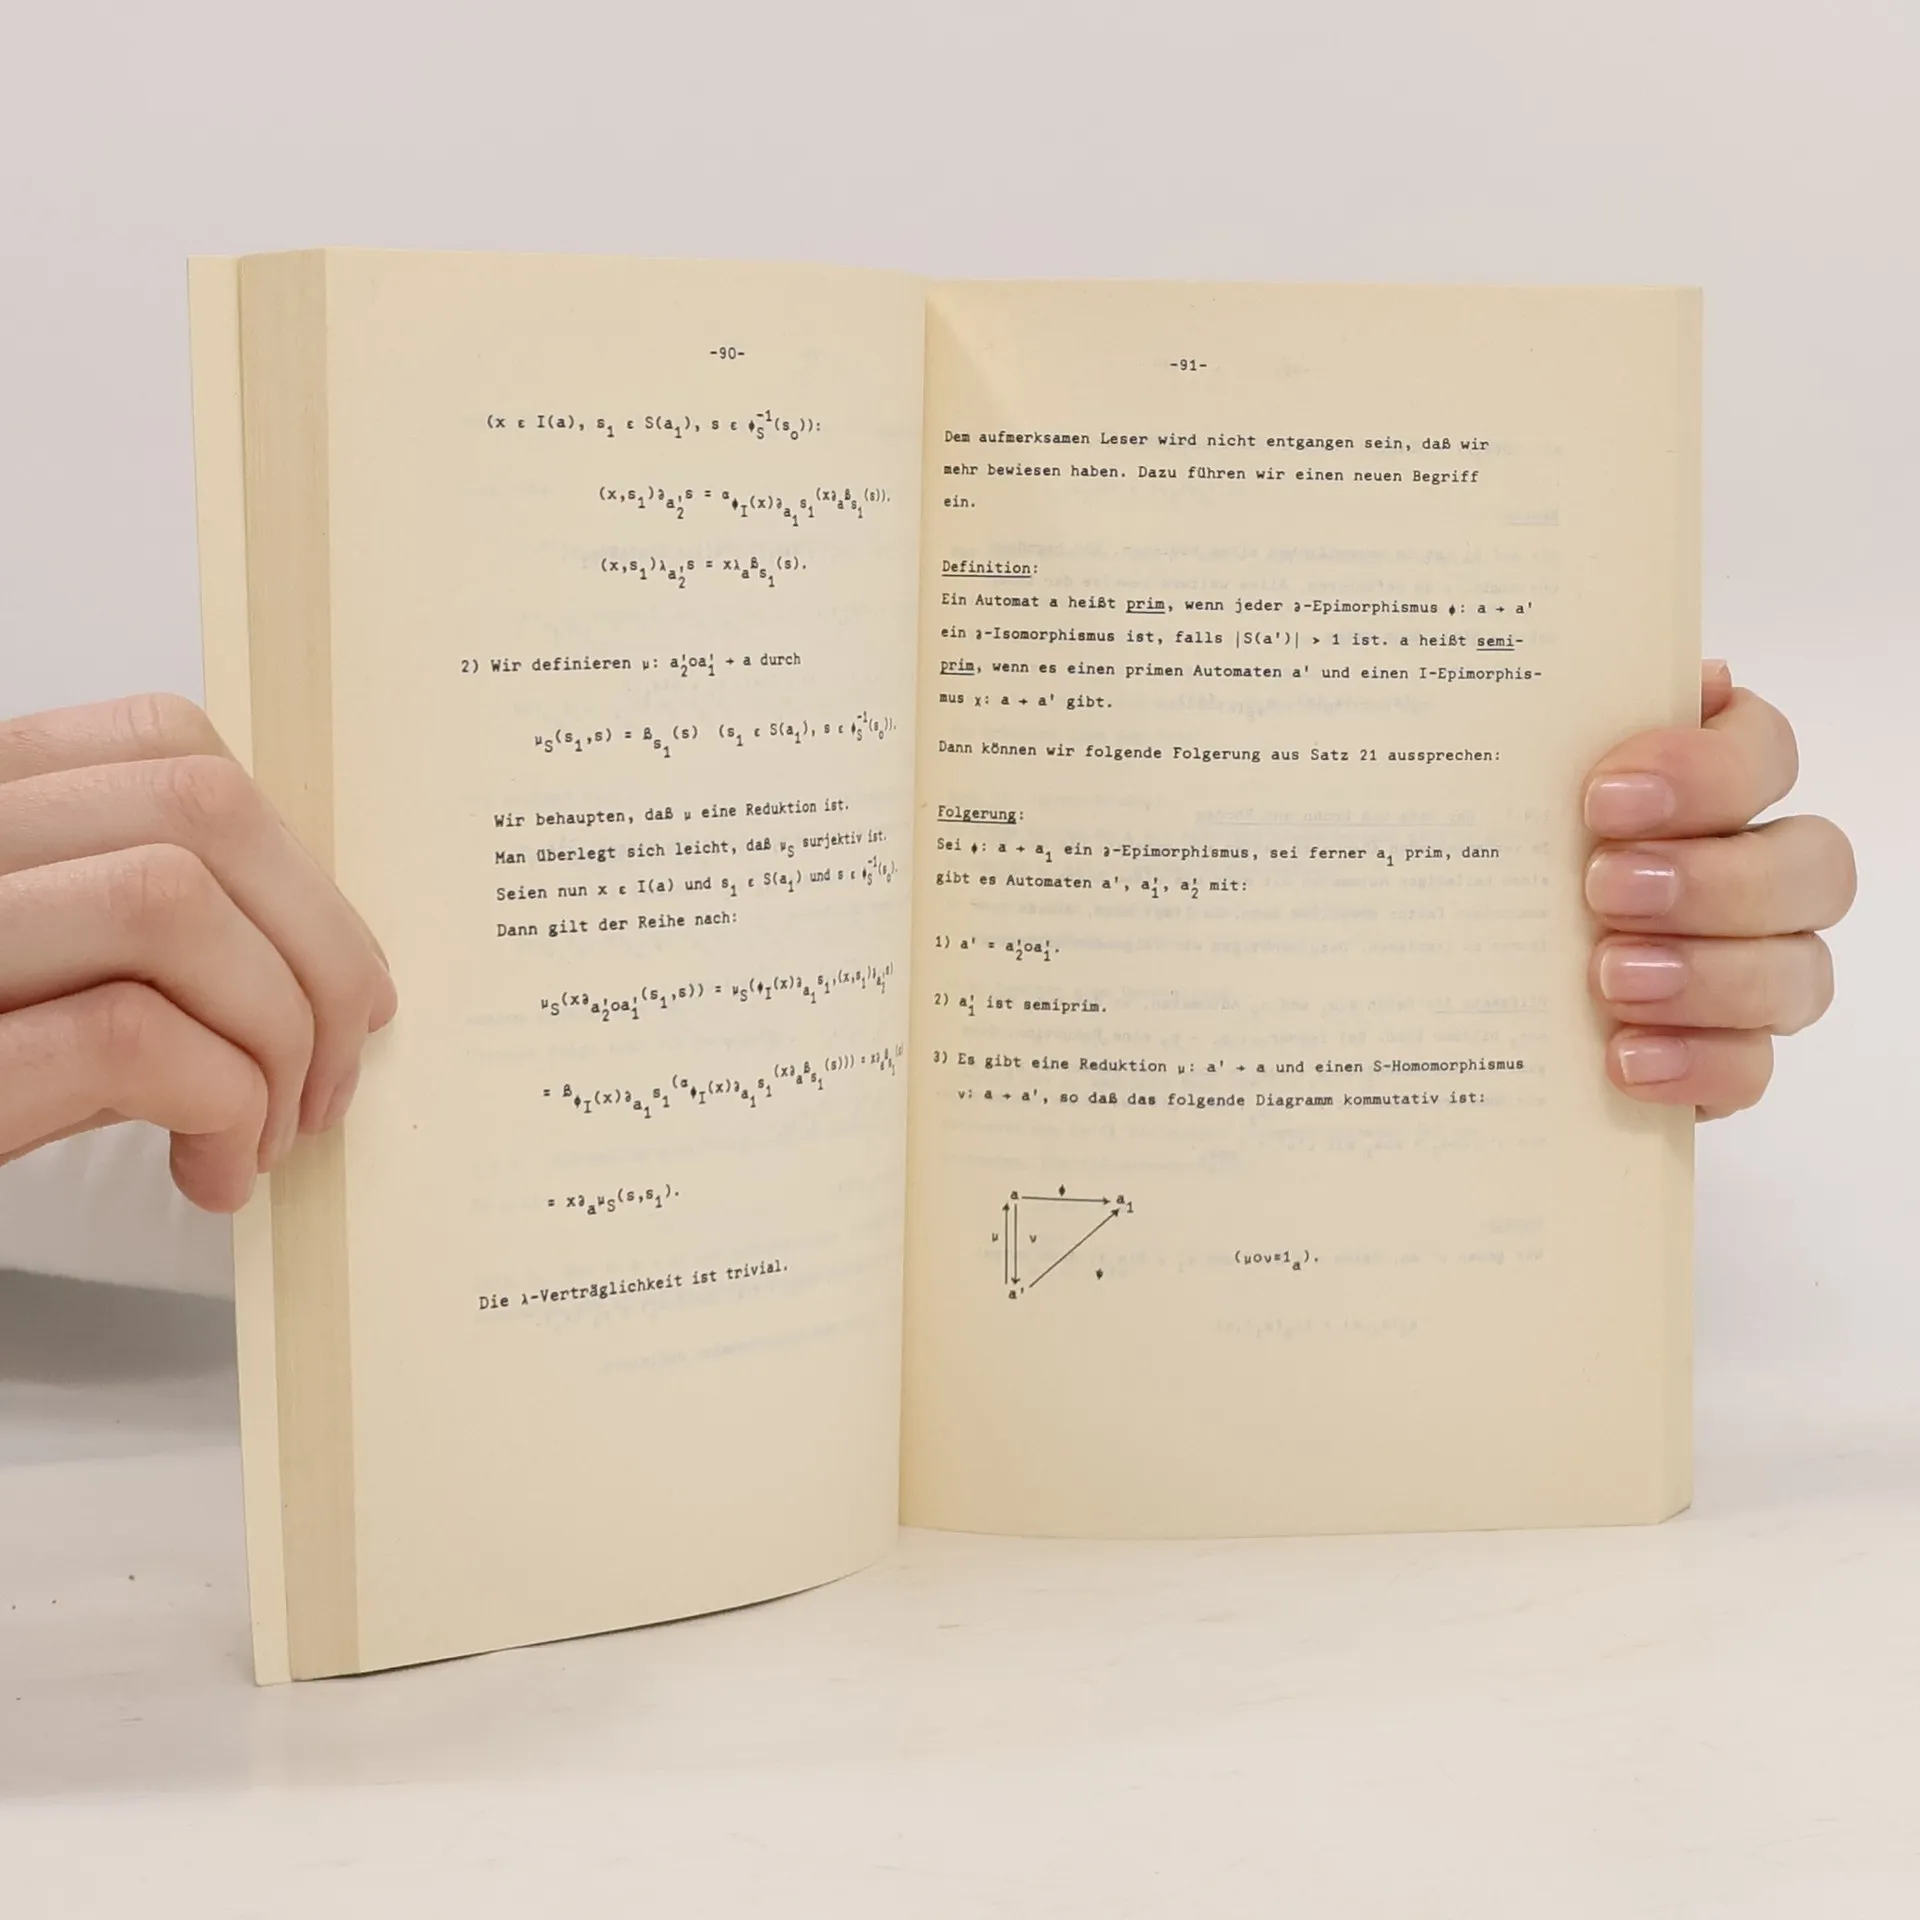 -90-
(x ε I(a), s₁ ε S(a₁), s ε ϕ_S^{-1}(s_o)):
(x,s₁)∂_{a₂'}s = α_{ϕ_I(x)∂_{a₁}s₁}(x∂_aβ_{s₁}(s)).
(x,s₁)λ_{a₂'}s = xλ_aβ_{s₁}(s).
2) Wir definieren μ: a₂'oa₁' → a durch
μ_S(s₁,s) = β_{s₁}(s) (s₁ ε S(a₁), s ε ϕ_S^{-1}(s_o)).
Wir behaupten, daß μ eine Reduktion ist.
Man überlegt sich leicht, daß μ_S surjektiv ist.
Seien nun x ε I(a) und s₁ ε S(a₁) und s ε ϕ_S^{-1}(s_o).
Dann gilt der Reihe nach:
μ_S(x∂_{a₂'oa₁'}(s₁,s)) = μ_S(ϕ_I(x)∂_{a₁}s₁,(x,s₁)∂_{a₂'}s)
= β_{ϕ_I(x)∂_{a₁}s₁}(α_{ϕ_I(x)∂_{a₁}s₁}(x∂_aβ_{s₁}(s))) = x∂_aβ_{s₁}(s)
= x∂_aμ_S(s,s₁).
Die λ-Verträglichkeit ist trivial.
-91-
Dem aufmerksamen Leser wird nicht entgangen sein, daß wir
mehr bewiesen haben. Dazu führen wir einen neuen Begriff
ein.
Definition:
Ein Automat a heißt prim, wenn jeder ∂-Epimorphismus ϕ: a → a'
ein ∂-Isomorphismus ist, falls |S(a')| > 1 ist. a heißt semi-
prim, wenn es einen primen Automaten a' und einen I-Epimorphis-
mus χ: a → a' gibt.
Dann können wir folgende Folgerung aus Satz 21 aussprechen:
Folgerung:
Sei ϕ: a → a₁ ein ∂-Epimorphismus, sei ferner a₁ prim, dann
gibt es Automaten a', a₁', a₂' mit:
1) a' = a₂'oa₁'.
2) a₁' ist semiprim.
3) Es gibt eine Reduktion μ: a' → a und einen S-Homomorphismus
ν: a → a', so daß das folgende Diagramm kommutativ ist:
a ϕ a₁
μ ν
(μoν=1_a).
ψ
a'